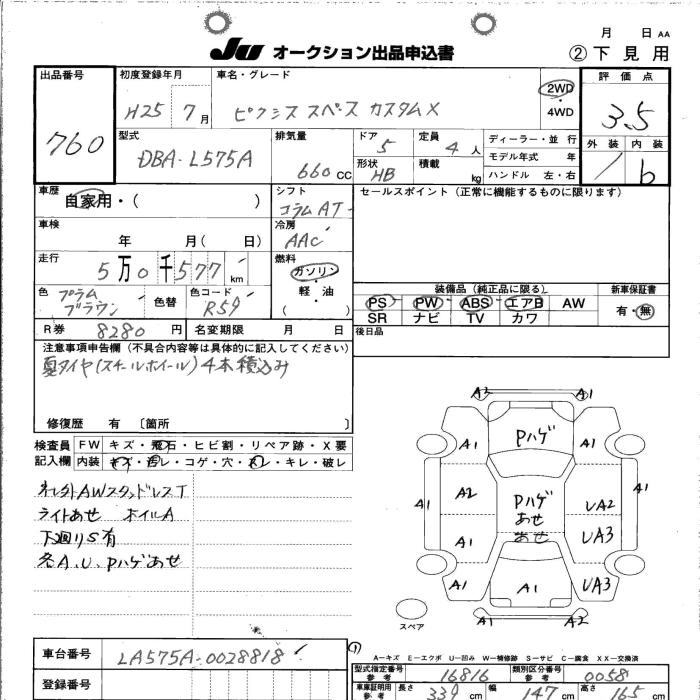 月 日 AA
JU オークション出品申込書 ②下見用
出品番号 初度登録年月 車名・グレード 評価点
760 H25 7月 ピクシス スペース カスタムX 2WD・4WD 3.5
型式 排気量 ドア 定員 ディーラー・並行 外装 内装
DBA-L575A 660cc 5 4人 モデル年式 年 1 b
形状 積載 ハンドル 左・右
HB kg
車歴 シフト セールスポイント(正常に機能するものに限ります)
自家用・( ) コラムAT
車検 冷房
年 月( 日) AAC
走行 燃料
5万0千577km ガソリン・軽・油
( )
色 色替 色コード 装備品(純正品に限る) 新車保証書
プラムブラウン R59 PS PW ABS エアB AW 有・無
SR ナビ TV カワ
R券 8280円 名変期限 月 日 後日品
注意事項申告欄(不具合内容等は具体的に記入してください)
夏タイヤ(スチールホイール)4本積込み
修復歴 有 〔箇所 〕
検査員記入欄 FW キズ・飛石・ヒビ割・リペア跡・X要
内装 キズ・汚レ・コゲ・穴・スレ・キレ・破レ
AWスタッドレスT
ライトあせ ホイルA
下廻りS有
各A、U、Pハゲあせ
A2 A1
A1 Pハゲ A1
A1 A2 Pハゲ あせ UA2 A1
A1 あせ UA3
A1 A1 UA3
A2 A1
スペア
A-キズ E-エクボ U-凹み W-補修跡 S-サビ C-腐食 XX-交換済
車台番号 LA575A-0028818
型式指定番号 参考 16816 類別区分番号 参考 0058
登録番号
車庫証明用 参考 長さ 339cm 幅 147cm 高さ 165cm